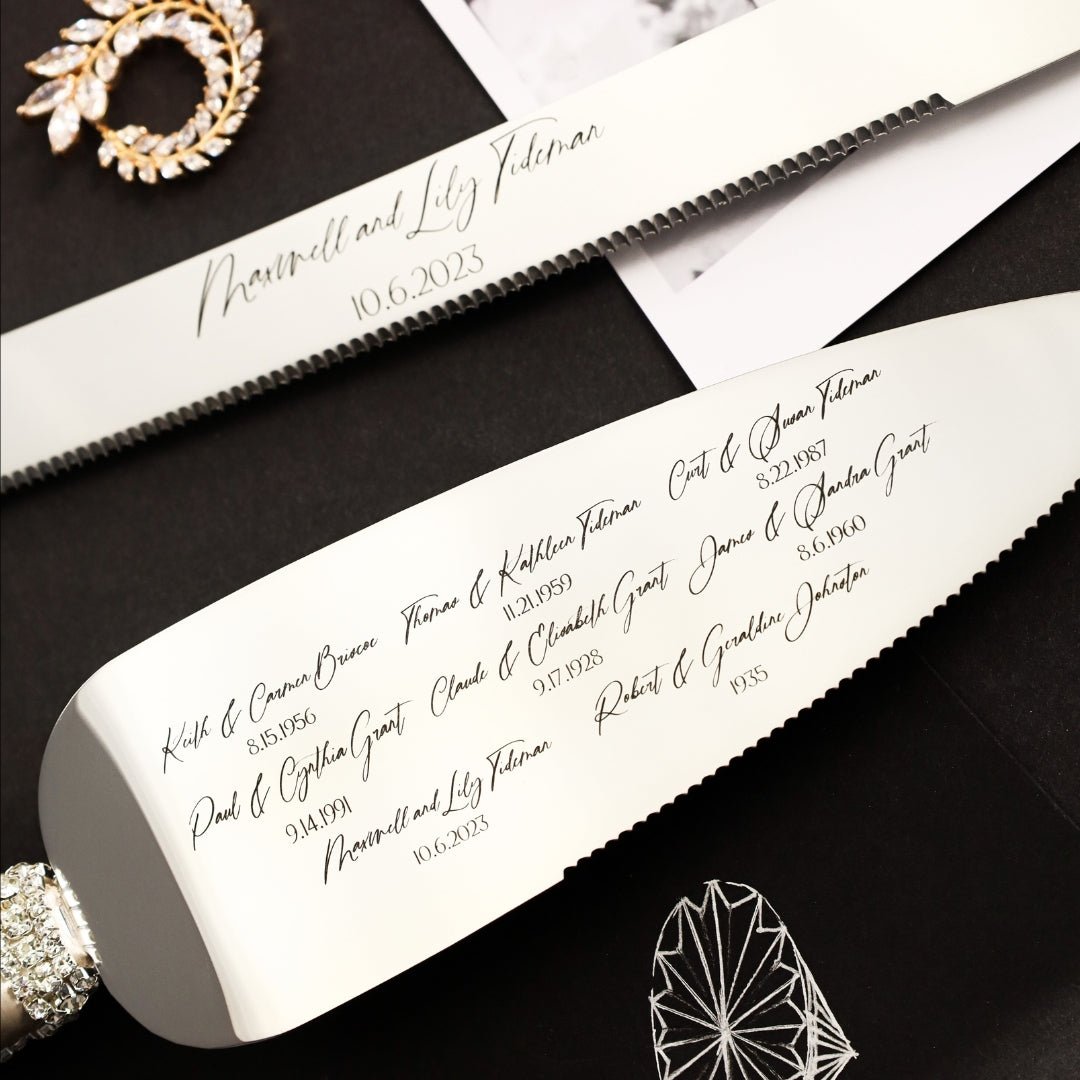 Maxwell and Lily Tideman
10.6.2023
Keith & Carmen Briscoe Thomas & Kathleen Tideman Curt & Susan Tideman
8.15.1956 11.21.1959 8.22.1987
Paul & Cynthia Grant Claude & Elisabeth Grant James & Sandra Grant
9.14.1991 9.17.1928 8.6.1960
Maxwell and Lily Tideman Robert & Geraldine Johnston
10.6.2023 1935